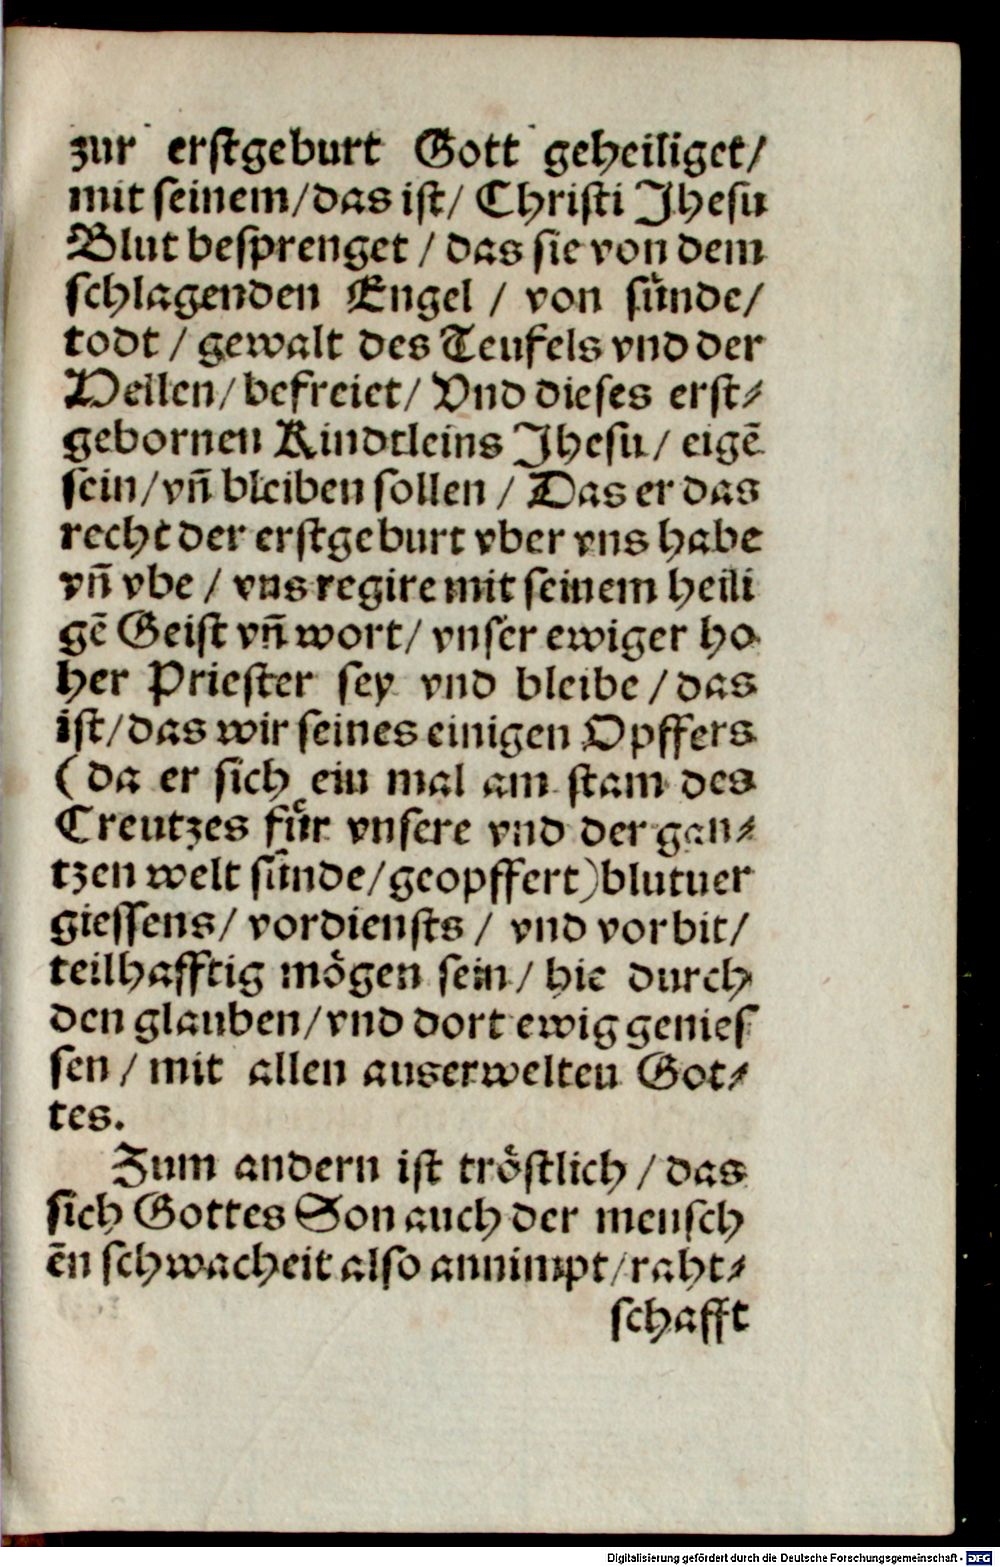 zur erstgeburt Gott geheiliget/
mit seinem/das ist/ Christi Jhesu
Blut besprenget / das sie von dem
schlagenden Engel / von sünde/
todt / gewalt des Teufels vnd der
Hellen/ befreiet/ Vnd dieses erst⸗
gebornen Kindtleins Jhesu/ eigē
sein/vñ bleiben sollen / Das er das
recht der erstgeburt vber vns habe
vñ vbe / vns regire mit seinem heili
gē Geist vñ wort/ vnser ewiger ho
her Priester sey vnd bleibe / das
ist/das wir seines einigen Opffers
(da er sich ein mal am stam des
Creutzes für vnsere vnd der gan⸗
tzen welt sünde/geopffert)blutuer
giessens/ vordiensts / vnd vorbit/
teilhafftig mögen sein/ hie durch
den glauben/vnd dort ewig genies
sen / mit allen auserwelten Got⸗
tes.
Zum andern ist tröstlich / das
sich Gottes Son auch der mensch
ēn schwacheit also annimpt/raht⸗
schafft
Digitalisierung gefördert durch die Deutsche Forschungsgemeinschaft - DFG